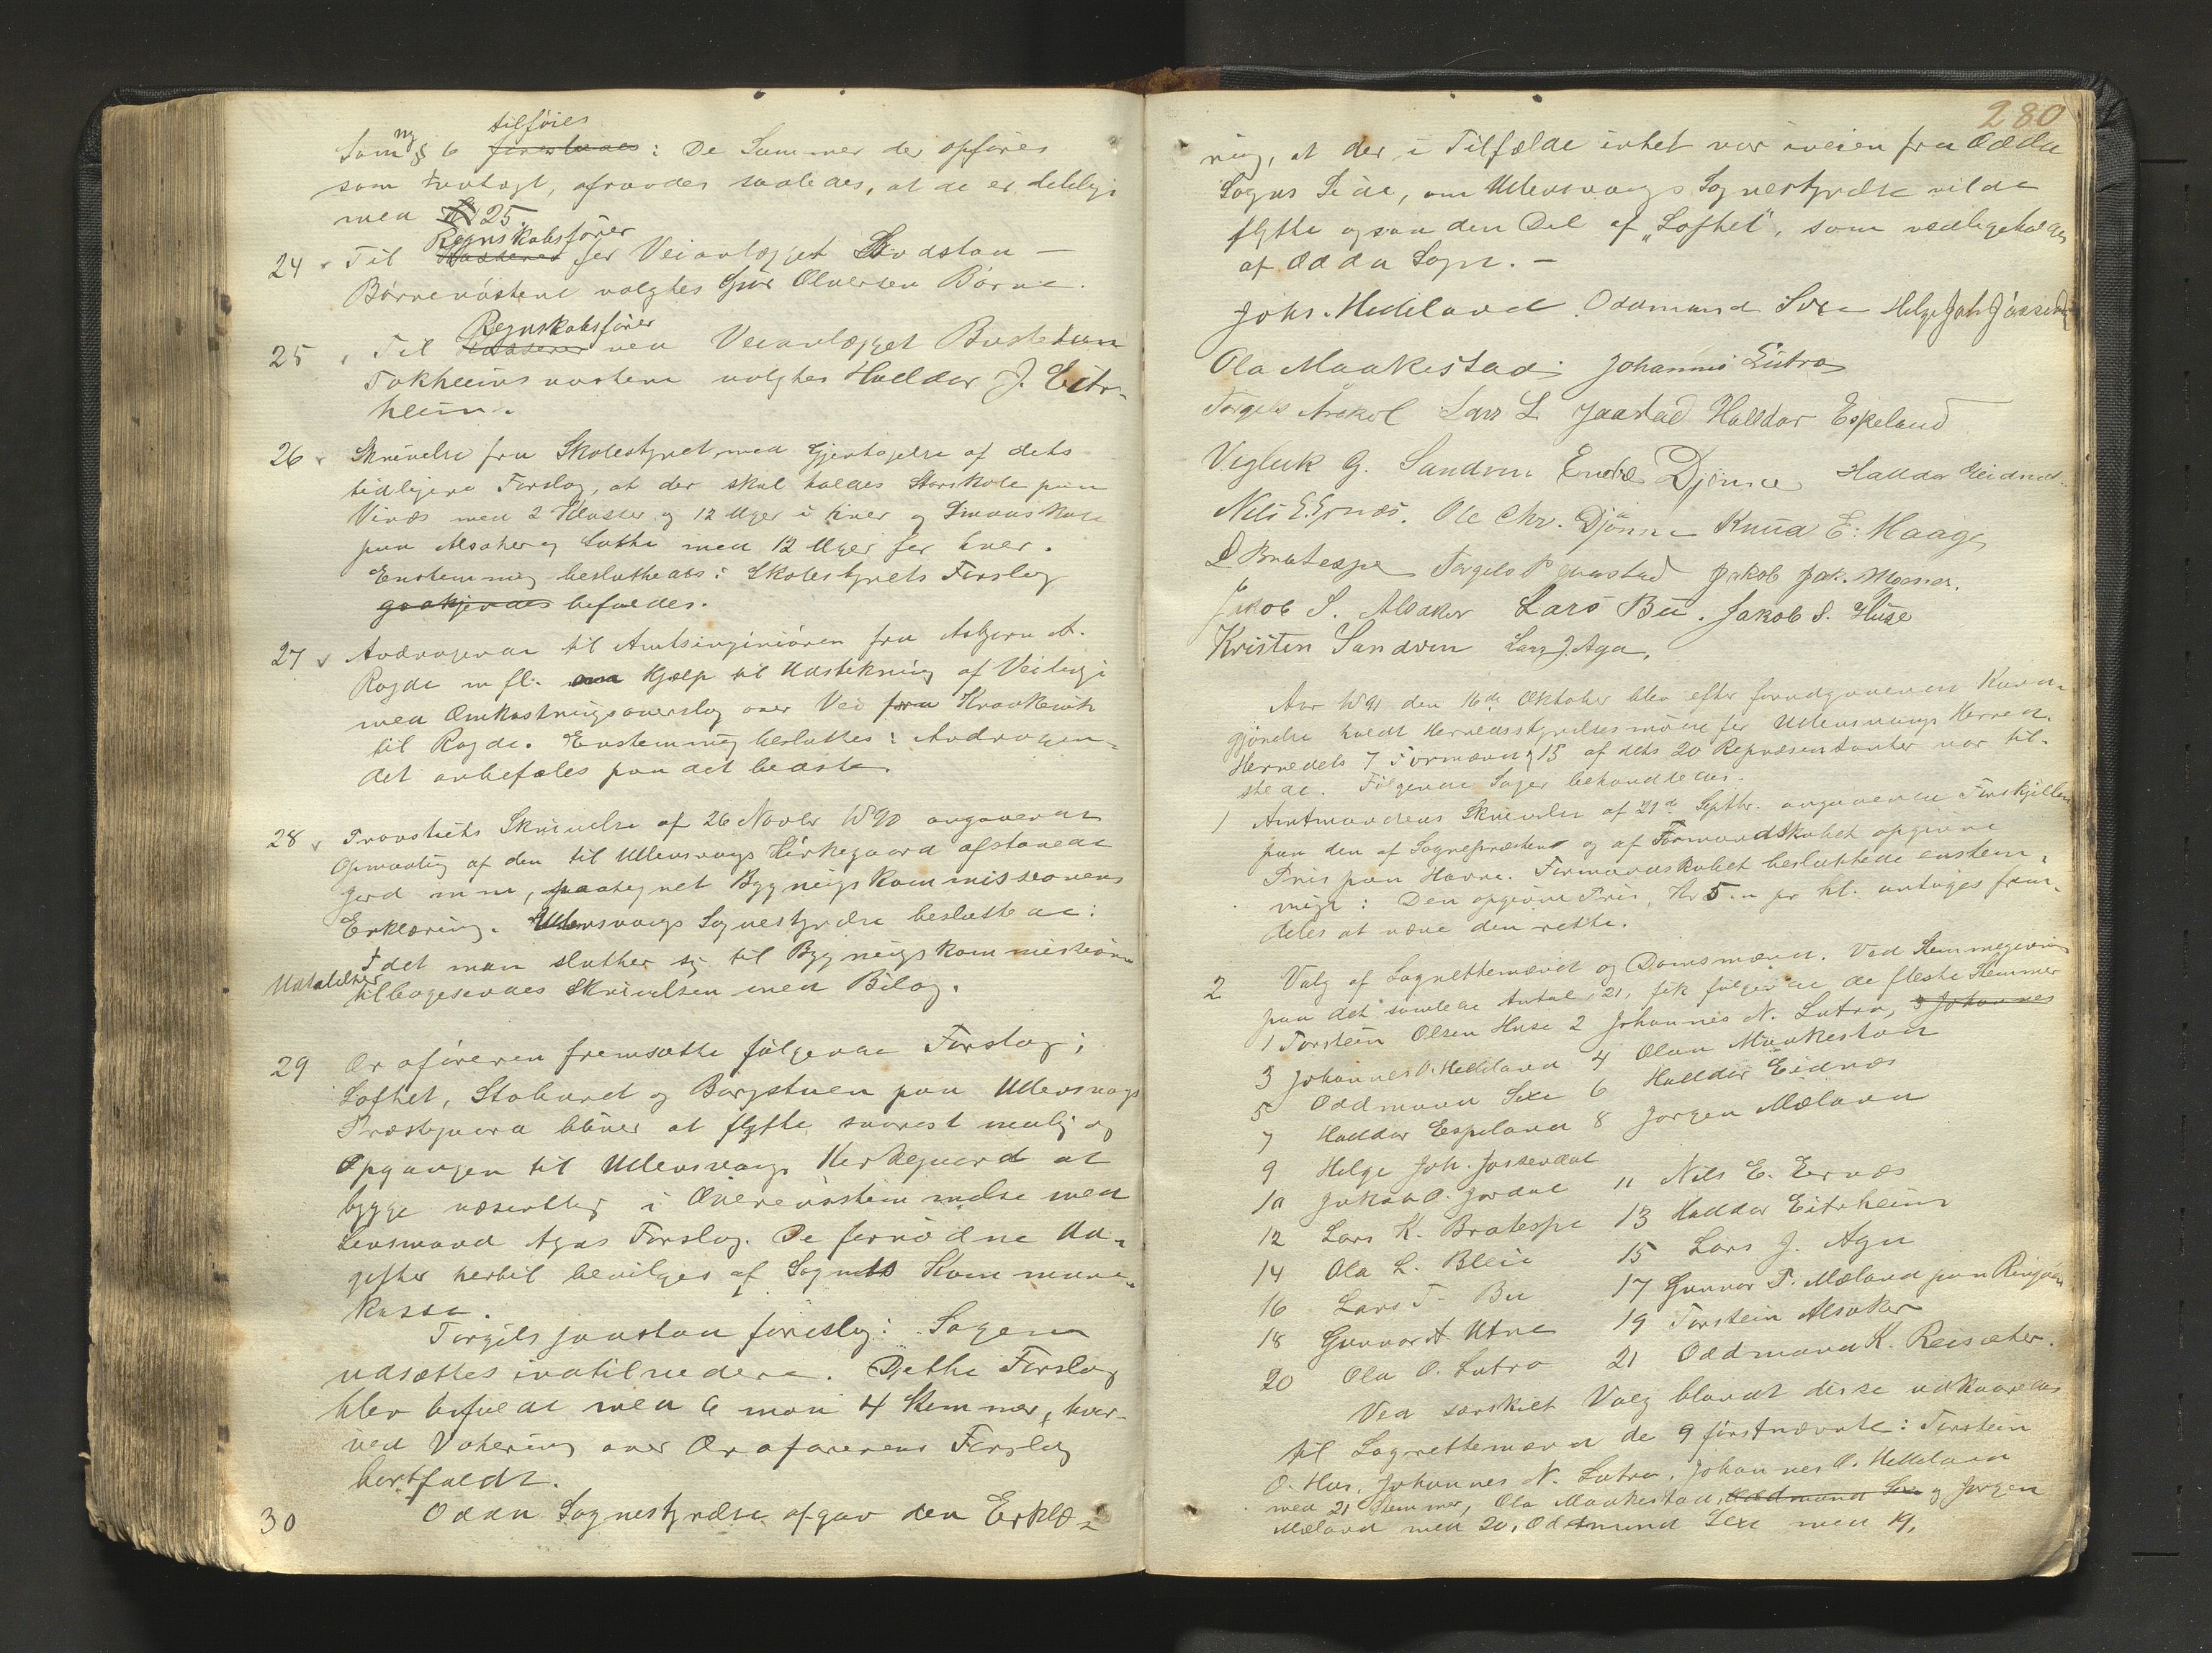 tilføies
Som ny § 6 foreslaaes : De Summer der opføres
som Indtægt, afrundes saaledes, at de er delelige
med 25.
Regnskabsfører
24 Til Kasserer for Veianlægget Skodstan -
Børvenøstene valgtes Guv Olversen Børve.
Regnskabsfører
25 Til Kasserer ved Veianlægget Bustetun
Tokheimsnøstene valgtes Halldor J. Eitr-
heim.
26 Skrivelse fra Skolestyret med Gjentagelse af dets
tidligere Forslag, at der skal holdes Storskole paa
Vines med 2 Klasser og 12 Uger i hver og Smaaskole
paa Alsaker og Lutra med 12 Uger for hver.
Enstemmig besluttedes: Skolestyrets Forslag
godkjendes bifaldes.
27 Andragende til Amtsingeniøren fra Asbjørn A.
Ragde m fl. om Hjælp til Udstikning af Veiling
med Omkostningsoverslag over Vei fra Kraakevik
til Ragde. Enstemmig besluttes: Andragen-
det anbefales paa det bedste.
28 Provstiets Skrivelse af 26 Novbr 1890 angaaende
Opmaaling af den til Ullensvangs Kirkegaard afstaaede
Jord m m, paategnet Bygningskommissionens
Erklæring. Ullensvangs Sognestyrelse besluttede:
Idet man slutter sig til Bygningskommissionens
Udtalelser
tilbagesendes Skrivelsen med Bilag.
29 Ordføreren fremsatte følgende Forslag;
Loftet, Staburet og Borgstuen paa Ullensvangs
Præstegaard bliver at flytte snarest mulig og
Opgangen til Ullensvangs Kirkegaard at
bygge væsentlig i Overensstemmelse med
Lensmand Agas Forslag. De fornødne Ud-
gifter hertil bevilges af Sognets Kommune-
kasse.
Torgils Jaastad foreslog: Sagen
udsættes indtilvidere. Dette Forslag
blev bifaldt med 6 mod 4 Stemmer, hver-
ved Votering over Ordførerens Forslag
bortfaldt.
30 Odda Sognestyrelse afgav den Erklæ-
280
ring, at der i Tilfælde intet var iveien fra Odda
Sogns Side, om Ullensvangs Sognestyrelse vilde
flytte ogsaa den Del af "Loftet", som vedligeholdes
af Odda Sogn. -
Johs. Helleland Oddmund Sexe Helge Joh Jøssendal
Ola Maakestad Johannis Lutro
Torgils Aaskel Lars L Jaastad Halldor Espeland
Vigleik G. Sandven Endre Djønne Halldor Eidnes
Nils E. Ernæs. Ole Chr. Djønne Knud E. Maage
L. Bratespe Torgils P Jaastad Jakob Jak. Moenes.
Jakob S. Alsaker Lars Bu. Jakob S. Huse
Kristen Sandven Lars J. Aga.
Aar 1891 den 16de Oktober blev efter forudgaaende Kund-
gjørelse holdt Herredsstyrelsesmøde for Ullensvangs Herred.
Herredets 7 Formænd og 15 af dets 20 Repræsentanter var til-
stede. Følgende Sager behandledes.
1 Amtmandens Skrivelse af 21de Septbr. angaaende Forskjellen
paa den af Sognepresten og af Formandskabet opgivne
Pris paa Havre. Formandskabet besluttede enstem-
migt: Den opgivne Pris, Kr 5.00 pr hl. antages frem-
deles at være den rette.
2 Valg af Lagrettemænd og Domsmænd. Ved Stemmegivning
paa det samlede Antal, 21, fik følgende de fleste Stemmer
1 Torstein Olsen Huse 2 Johannis N. Lutro, 3 Johannes
3 Johannes O. Helleland 4 Olav Maakestad
5 Oddmund Sexe 6 Halldor Eidnes
7 Halldor Espeland 8 Jørgen Mæland
9 Helge Joh. Jøssendal
10 Jakob O. Jordal 11 Nils E. Ernæs
12 Lars K. Bratespe 13 Halldor Eitrheim
14 Ola L. Bleie 15 Lars J. Aga
16 Lars T. Bu 17 Gunnar T. Mæland paa Ringøen
18 Gunnar A Utne 19 Torstein Alsaker
20 Ola O. Lutro 21 Oddmund K. Reisæter.
Ved særskilt Valg blandt disse udkaaredes
til Lagrettemænd de 9 førstnævnte: Torstein
O. Hus, Johannes N. Lutro, Johannes O. Helleland
med 21 Stemmer, Ola Maakestad, Oddmund Sexe og Jørgen
Mæland med 20, Oddmund Sexe med 19,